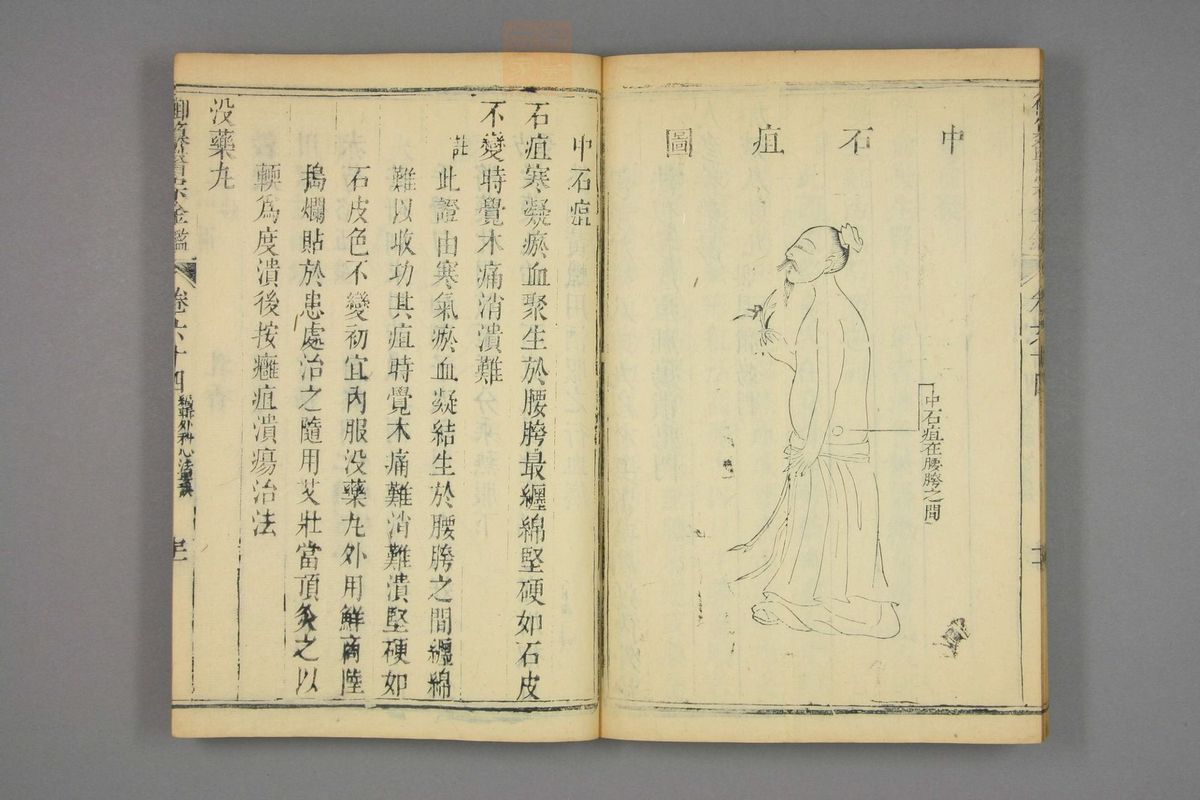 中石疽圖
中石疽在腰胯之間
中石疽
石疽寒凝瘀血聚生於腰胯最纏綿堅硬如石皮
不變時覺木痛消潰難
註此證由寒氣瘀血凝結生於腰胯之間纏綿
難以收功其疽時覺木痛難消難潰堅硬如
石皮色不變初宜內服没藥丸外用鮮商陸
搗爛貼於患處治之隨用艾壯當頂灸之以
輭為度潰後按癰疽潰瘍治法
没藥丸
御纂醫宗金鑑 卷六十四 編輯外科心法要訣